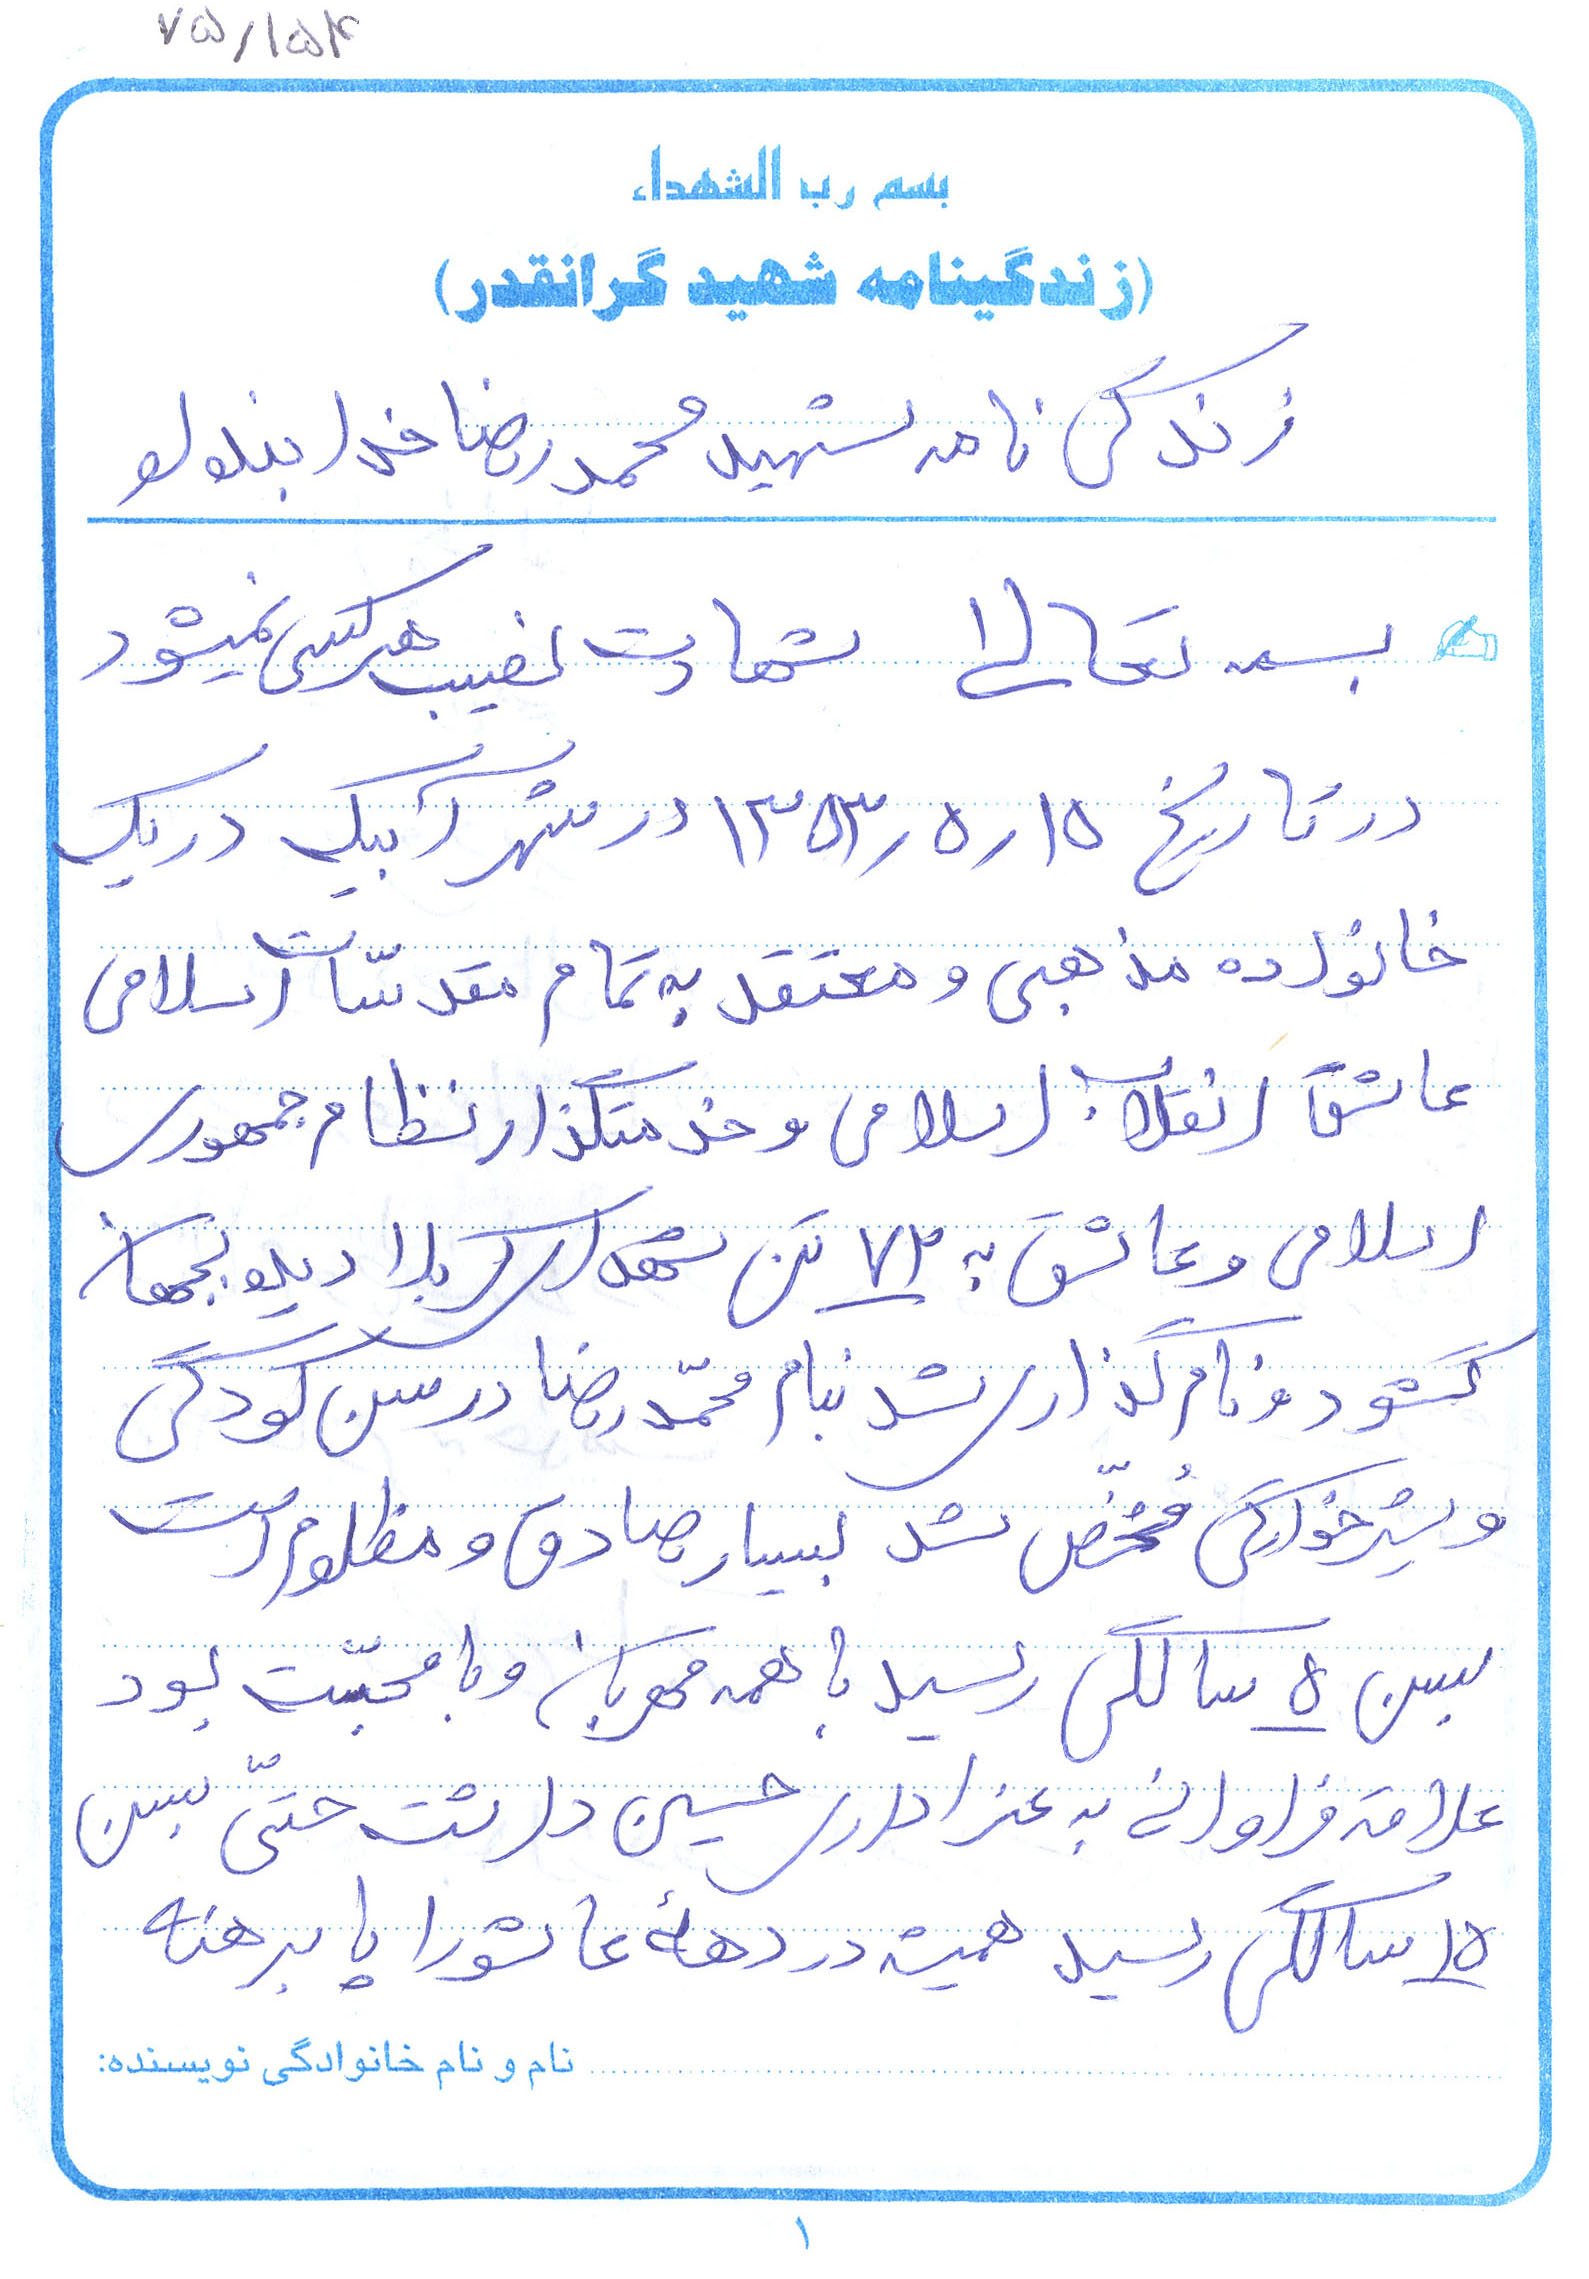 ۷۵/۱۵۴
بسم رب الشهداء
(زندگینامه شهید گرانقدر)
زندگی نامه شهید محمد رضا خدابنده لو
بسمه تعالی شهادت نصیب هر کسی نمیشود
در تاریخ ۱۵ر۵ر۱۳۵۳ در شهر آبیک در یک
خانواده مذهبی و معتقد به تمام مقدسّات اسلامی
عاشق انقلاب اسلامی و خدمتگذار نظام جمهوری
اسلامی و عاشق به ۷۲ تن شهدای کربلا دیده بجهان
گشود و نام گذاری شد بنام محمّد رضا در سن کودکی
و شیرخوارگی مُشخّص شد بسیار صادق و مظلوم است
بسن ۵ سالگی رسید با همه مهربان و با محبّت بود
علاقه فراوانی به عزاداری حسین داشت حتّی بسن
۱۵ سالگی رسید همیشه در دههٔ عاشورا پا برهنه
نام و نام خانوادگی نویسنده:
۱